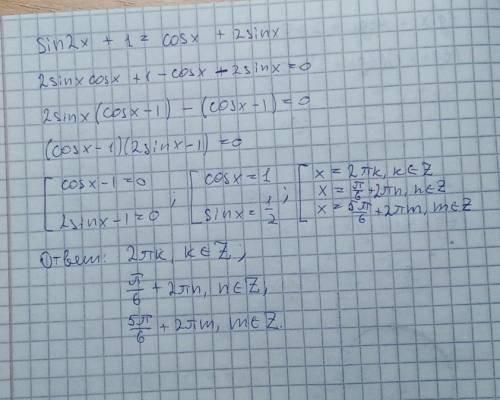 sin2x + 1 = cosx + 2sinx
2sinx cosx + 1 - cosx - 2sinx = 0
2sinx(cosx-1) - (cosx-1) = 0
(cosx-1)(2sinx-1) = 0
[ cosx-1=0 ; [ cosx=1 ; [ x = 2πk, k∈Z
x = π/6 + 2πn, n∈Z
2sinx-1=0 sinx = 1/2 x = 5π/6 + 2πm, m∈Z
Ответ: 2πk, k∈Z;
π/6 + 2πn, n∈Z,
5π/6 + 2πm, m∈Z.